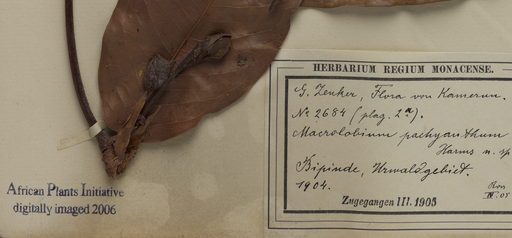 HERBARIUM REGIUM MONACENSE.
G. Zenker, Flora von Kamerun.
No 2684 (plag. 2a).
Macrolobium pachyanthum
Harms n. sp
Bipinde, Urwaldgebiet.
1904.
Zugegangen III. 1905
African Plants Initiative
digitally imaged 2006